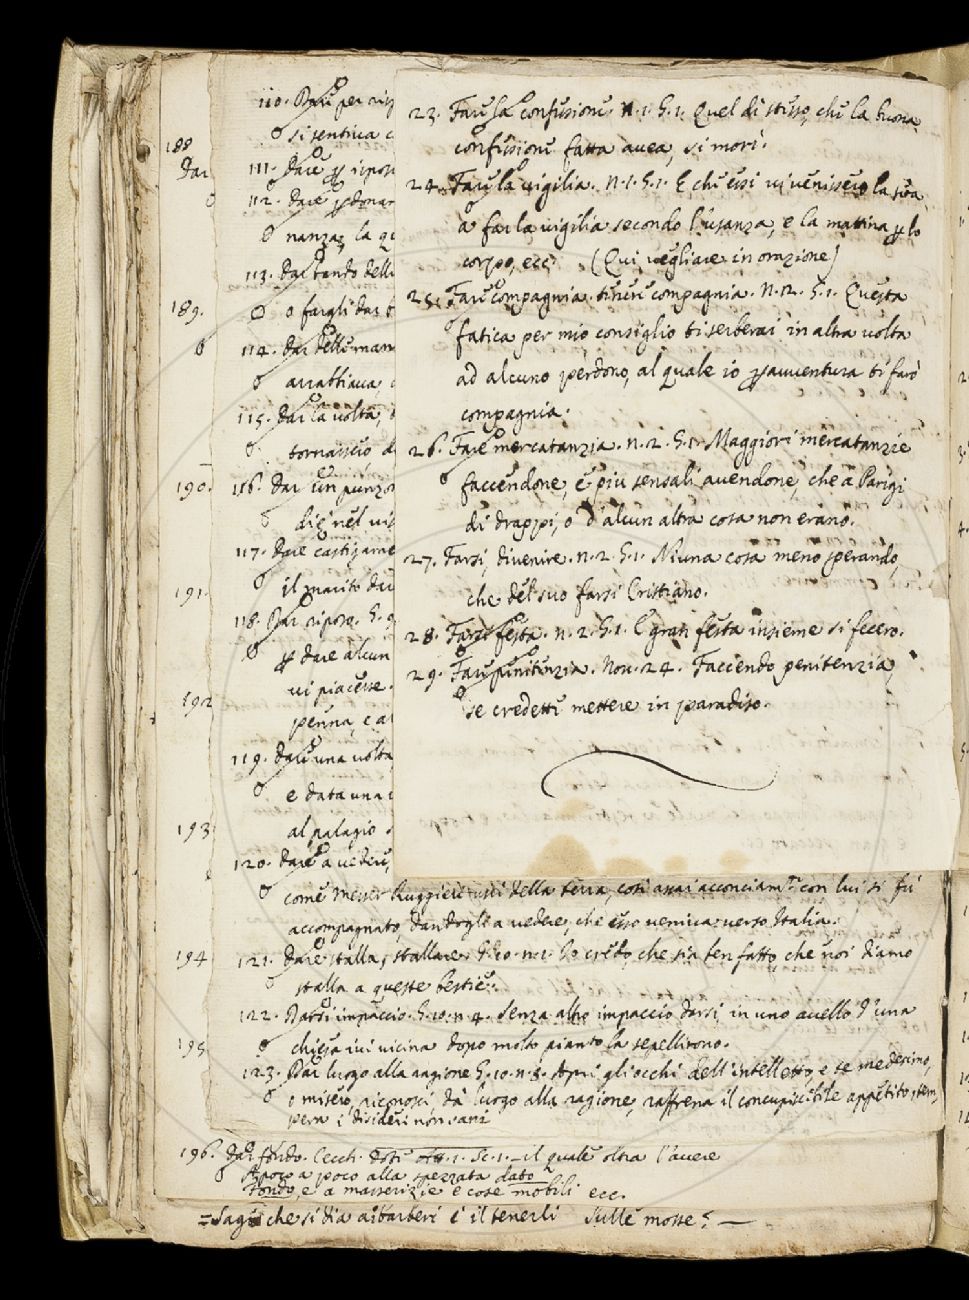 23. Fare la confessione N.1. G.1. Quel dì stesso, che la buona
confessione fatta avea, si morì.
24. Fare la vigilia. N.1. G.1. E che essi vi venissero la sera
a far la vigilia secondo l'usanza, e la mattina p lo
corpo, ecc. (Qui vegliare in orazione)
25. Fare compagnia. tenere compagnia. N.12. G.1. Questa
fatica per mio consiglio ti serberai in altra volta
ad alcuno perdono, al quale io p avventura ti farò
compagnia.
26. Fare mercatanzia. n.2. G.1. Maggiori mercatanzie
faccendone, e più sensali avendone, che a Parigi
di drappi, o d'alcun altra cosa non erano.
27. Farsi, divenire. n.2. G.1. Niuna cosa meno sperando,
che del suo farsi Cristiano.
28. Farsi festa. n.2. G.1. E gran festa insieme si fecero.
29. Fare penitenzia. Nov. 24. Faccendo penitenzia,
se credette mettere in paradiso.
110. Dare per
si sentiva
188
Dar
111. Dare p ripos
112. dare p donar
nanza, la qu
113. Dar bando dell
189.
o fargli dar
114. dar delle man
arrabbiava
115. Dar la volta,
tornassero
190.
116. Dar un punzo
die nel vi
117. Dare castigame
191.
il marito da
118. Dar riposo. G.
p dare alcun
vi piacesse.
192
penna, e a
119. Dare una volta
e data una
193
al palagio
120. dare a vedere,
come Messer Ruggieri usci della terra, così assai acconciam.te con lui si fu
accompagnato, dandogli a vedere, che esso veniva verso Italia.
194
121. dare stalla, stallare G.10. n.1. Io credo, che sia ben fatto, che noi diamo
stalla a queste bestie.
122. Darsi impaccio. G.10. n.4. Senza altro impaccio darsi, in uno avello d'una
195
chiesa ivi vicina dopo molto pianto la sepellirono.
123. Dar luogo alla ragione G.10. n.8. Apri gli occhi dell'intelletto, e te medesimo,
o misero, riconosci dà luogo alla ragione, raffrena il concupiscibile appetito, tem,
pera i disideri non sani
196. dar fondo. Cecch. Dote Att.1. Sc.1. il quale oltra l'avere
A poco a poco alla spezzata dato
Fondo, e a masserizie e cose mobili ecc.
che si dia a i barberi è il tenerli sulle mosse?